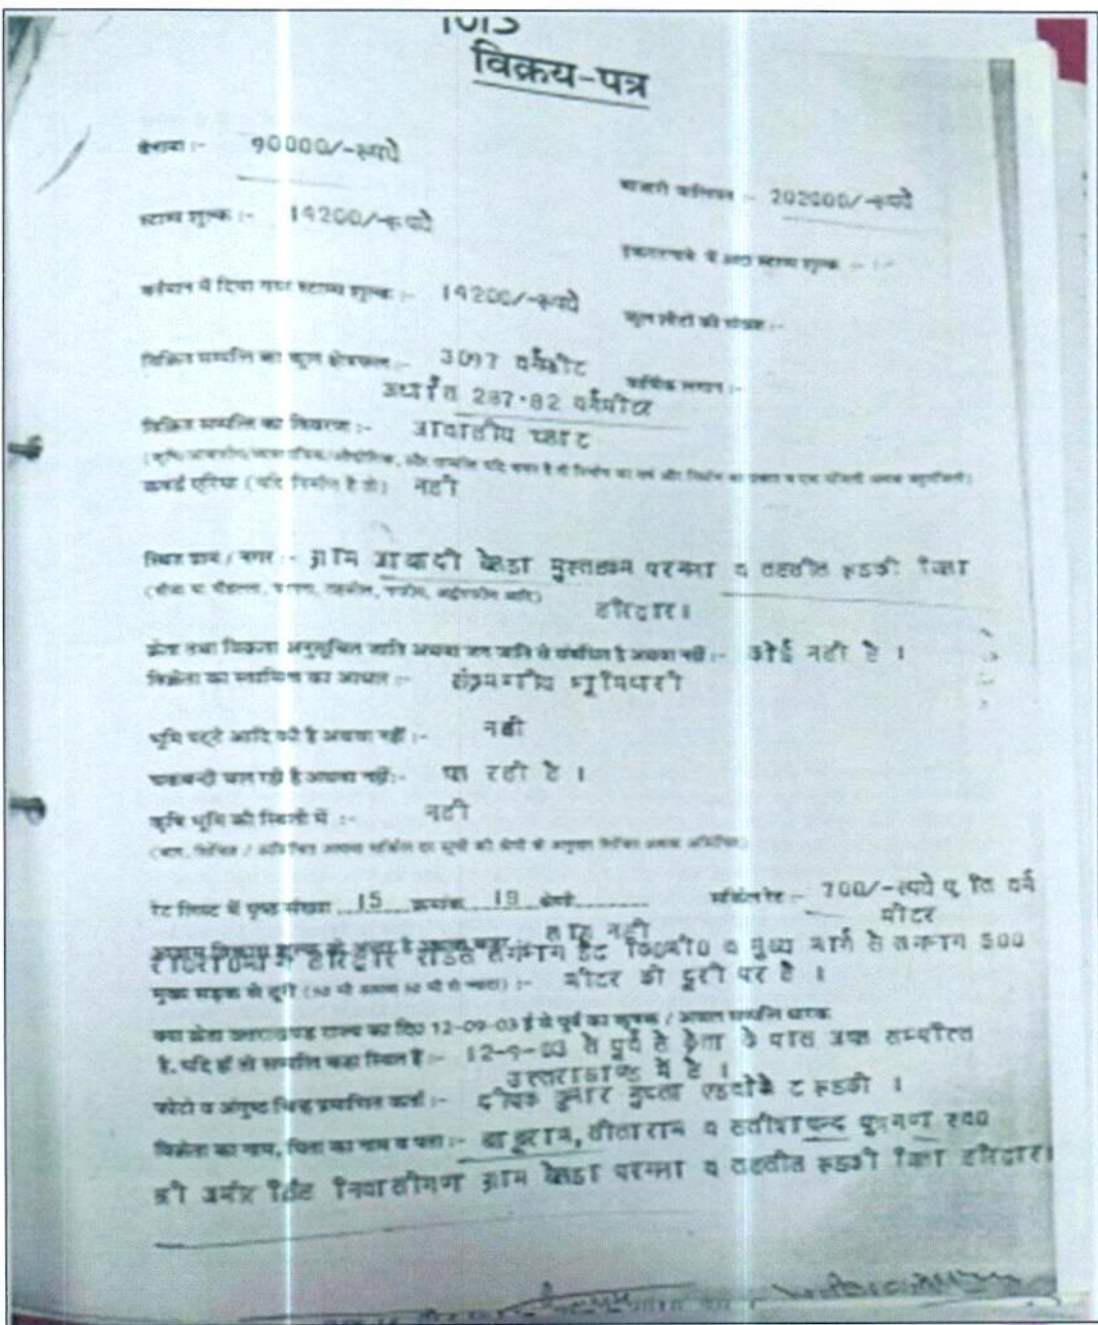 1013
विक्रय-पत्र
बैनामा :- 90000/-रूपये
बाजारी मालियत :- 202000/-रूपये
स्टाम्प शुल्क :- 14200/-रूपये
इकरारनामे में अदा स्टाम्प शुल्क - :-
वर्तमान में दिया गया स्टाम्प शुल्क :- 14200/-रूपये
विक्रित सम्पत्ति का कुल क्षेत्रफल :- 3097 वर्गफीट
वार्षिक लगान :-
अर्थात 287.82 वर्गमीटर
विक्रित सम्पत्ति का विवरण :- आवासीय प्लाट
कवर्ड एरिया (यदि निर्माण है तो) नही
स्थित ग्राम / नगर :- ग्राम आबादी बेलडा मुस्तहकम परगना व तहसील रूडकी जिला
हरिद्वार।
क्रेता तथा विक्रेता अनुसूचित जाति अथवा जन जाति से संबंधित है अथवा नहीं :- कोई नही है ।
विक्रेता का स्वामित्व का आधार :- संक्रमणीय भूमिधरी
भूमि पट्टे आदि की है अथवा नहीं :- नही
चकबन्दी चल रही है अथवा नहीं:- चल रही है ।
कृषि भूमि की स्थिती में :- नही
रेट लिस्ट में पृष्ठ संख्या 15 क्रमांक 19 श्रेणी
सर्किल रेट :- 700/-रूपये प्रति वर्ग
मीटर
लागू नही
हरिद्वार रोड से लगभग डेढ कि०मी० व मुख्य मार्ग से लगभग 500
मुख्य सड़क से दूरी (50 मी अथवा 50 मी से ज्यादा) :- मीटर की दूरी पर है ।
क्या क्रेता उत्तराखण्ड राज्य का दि० 12-09-03 ई से पूर्व का कृषक / अचल सम्पत्ति धारक
है, यदि हाँ तो सम्पत्ति कहा स्थित है :- 12-9-03 से पूर्व से क्रेता के पास अचल सम्पत्ति
उत्तराखण्ड में है ।
फोटो व अंगुष्ट चिन्ह प्रमाणित कर्ता :- दीपक कुमार गुप्ता एडवोकेट रूडकी ।
विक्रेता का नाम, पिता का नाम व पता :- बाबूराम, सीताराम व सतीशचन्द पुत्रगण स्व०
निवासीगण ग्राम बेलडा परगना व तहसील रूडकी जिला हरिद्वार।